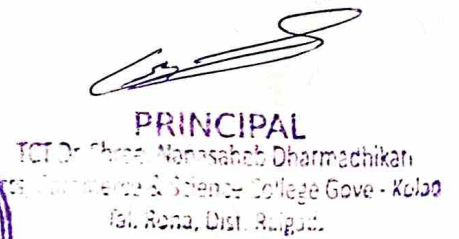 PRINCIPAL
TCT Dr Shree. Nanasaheb Dharmadhikari
Commerce & Science College Gove - Kolad
Tal. Roha, Dist. Raigad.